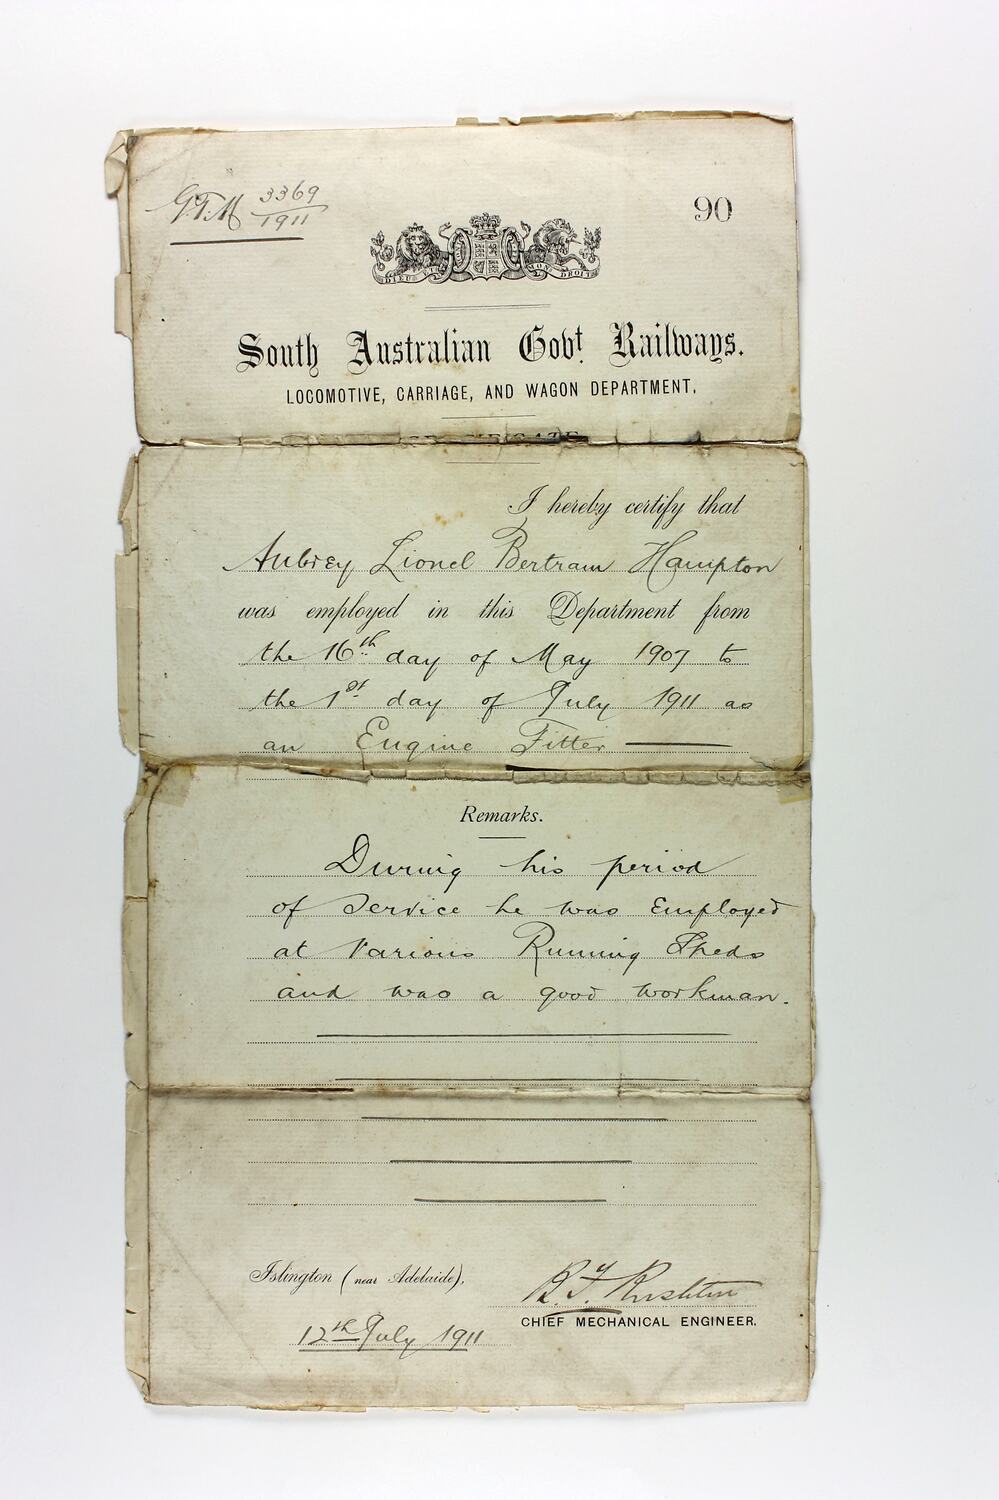 G.T.M 3369/1911
90
DIEU ET MON DROIT
South Australian Govt. Railways.
LOCOMOTIVE, CARRIAGE, AND WAGON DEPARTMENT.
CERTIFICATE
I hereby certify that
Aubrey Lionel Bertram Hampton
was employed in this Department from
the 16th day of May 1907 to
the 1st day of July 1911 as
an Engine Fitter
Remarks.
During his period
of Service he was Employed
at Various Running Sheds
and was a good workman.
Islington (near Adelaide),
B. F. Rushton
CHIEF MECHANICAL ENGINEER.
12th July 1911